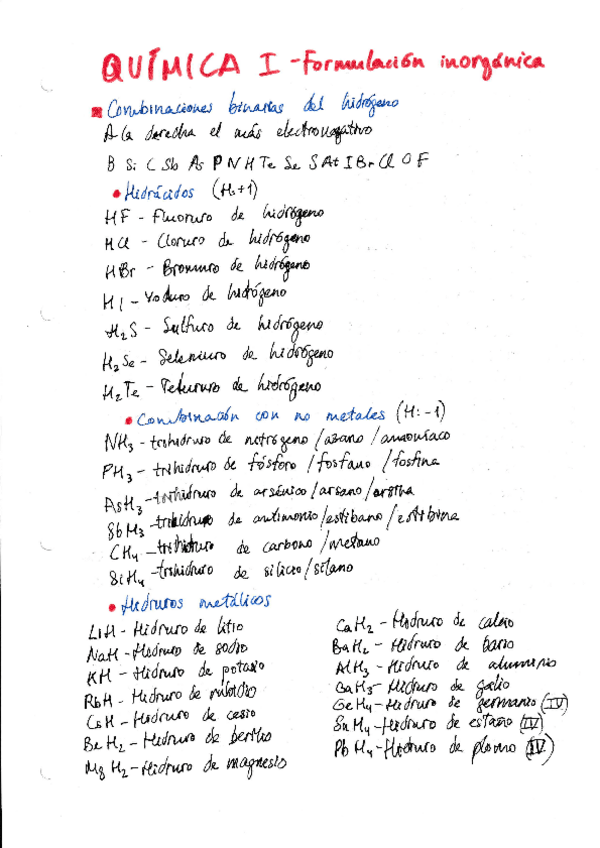 QUÍMICA I - Formulación inorgánica
Combinaciones binarias del hidrógeno
A la derecha el más electronegativo
B Si C Sb As P N H Te Se S At I Br Cl O F
Hidrácidos (H:+1)
HF - Fluoruro de hidrógeno
HCl - Cloruro de hidrógeno
HBr - Bromuro de hidrógeno
HI - Yoduro de hidrógeno
H₂S - Sulfuro de hidrógeno
H₂Se - Seleniuro de hidrógeno
H₂Te - Telururo de hidrógeno
Combinación con no metales (H:-1)
NH₃ - trihidruro de nitrógeno / azano / amoníaco
PH₃ - trihidruro de fósforo / fosfano / fosfina
AsH₃ - trihidruro de arsénico / arsano / arsina
SbH₃ - trihidruro de antimonio / estibano / estibina
CH₄ - trihidruro de carbono / metano
SiH₄ - trihidruro de silicio / silano
Hidruros metálicos
LiH - Hidruro de litio
NaH - Hidruro de sodio
KH - Hidruro de potasio
RbH - Hidruro de rubidio
CsH - Hidruro de cesio
BeH₂ - Hidruro de berilio
MgH₂ - Hidruro de magnesio
CaH₂ - Hidruro de calcio
BaH₂ - Hidruro de bario
AlH₃ - Hidruro de aluminio
GaH₃ - Hidruro de galio
GeH₄ - Hidruro de germanio (IV)
SnH₄ - Hidruro de estaño (IV)
PbH₄ - Hidruro de plomo (IV)